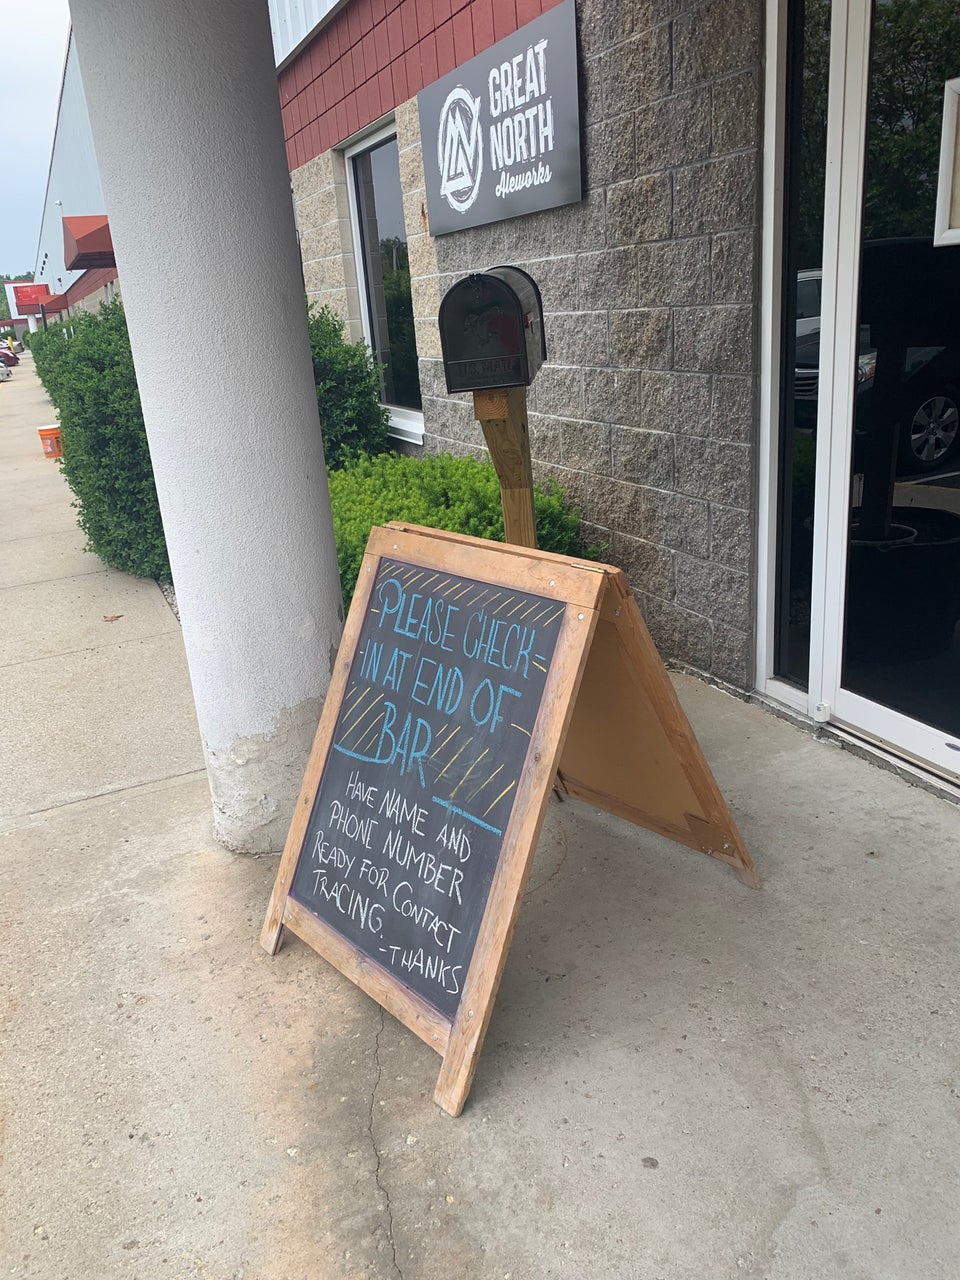 GREAT
NORTH
Aleworks
U.S. MAIL
PLEASE CHECK-
-IN AT END OF
BAR
HAVE NAME AND
PHONE NUMBER
READY FOR CONTACT
TRACING.
-THANKS